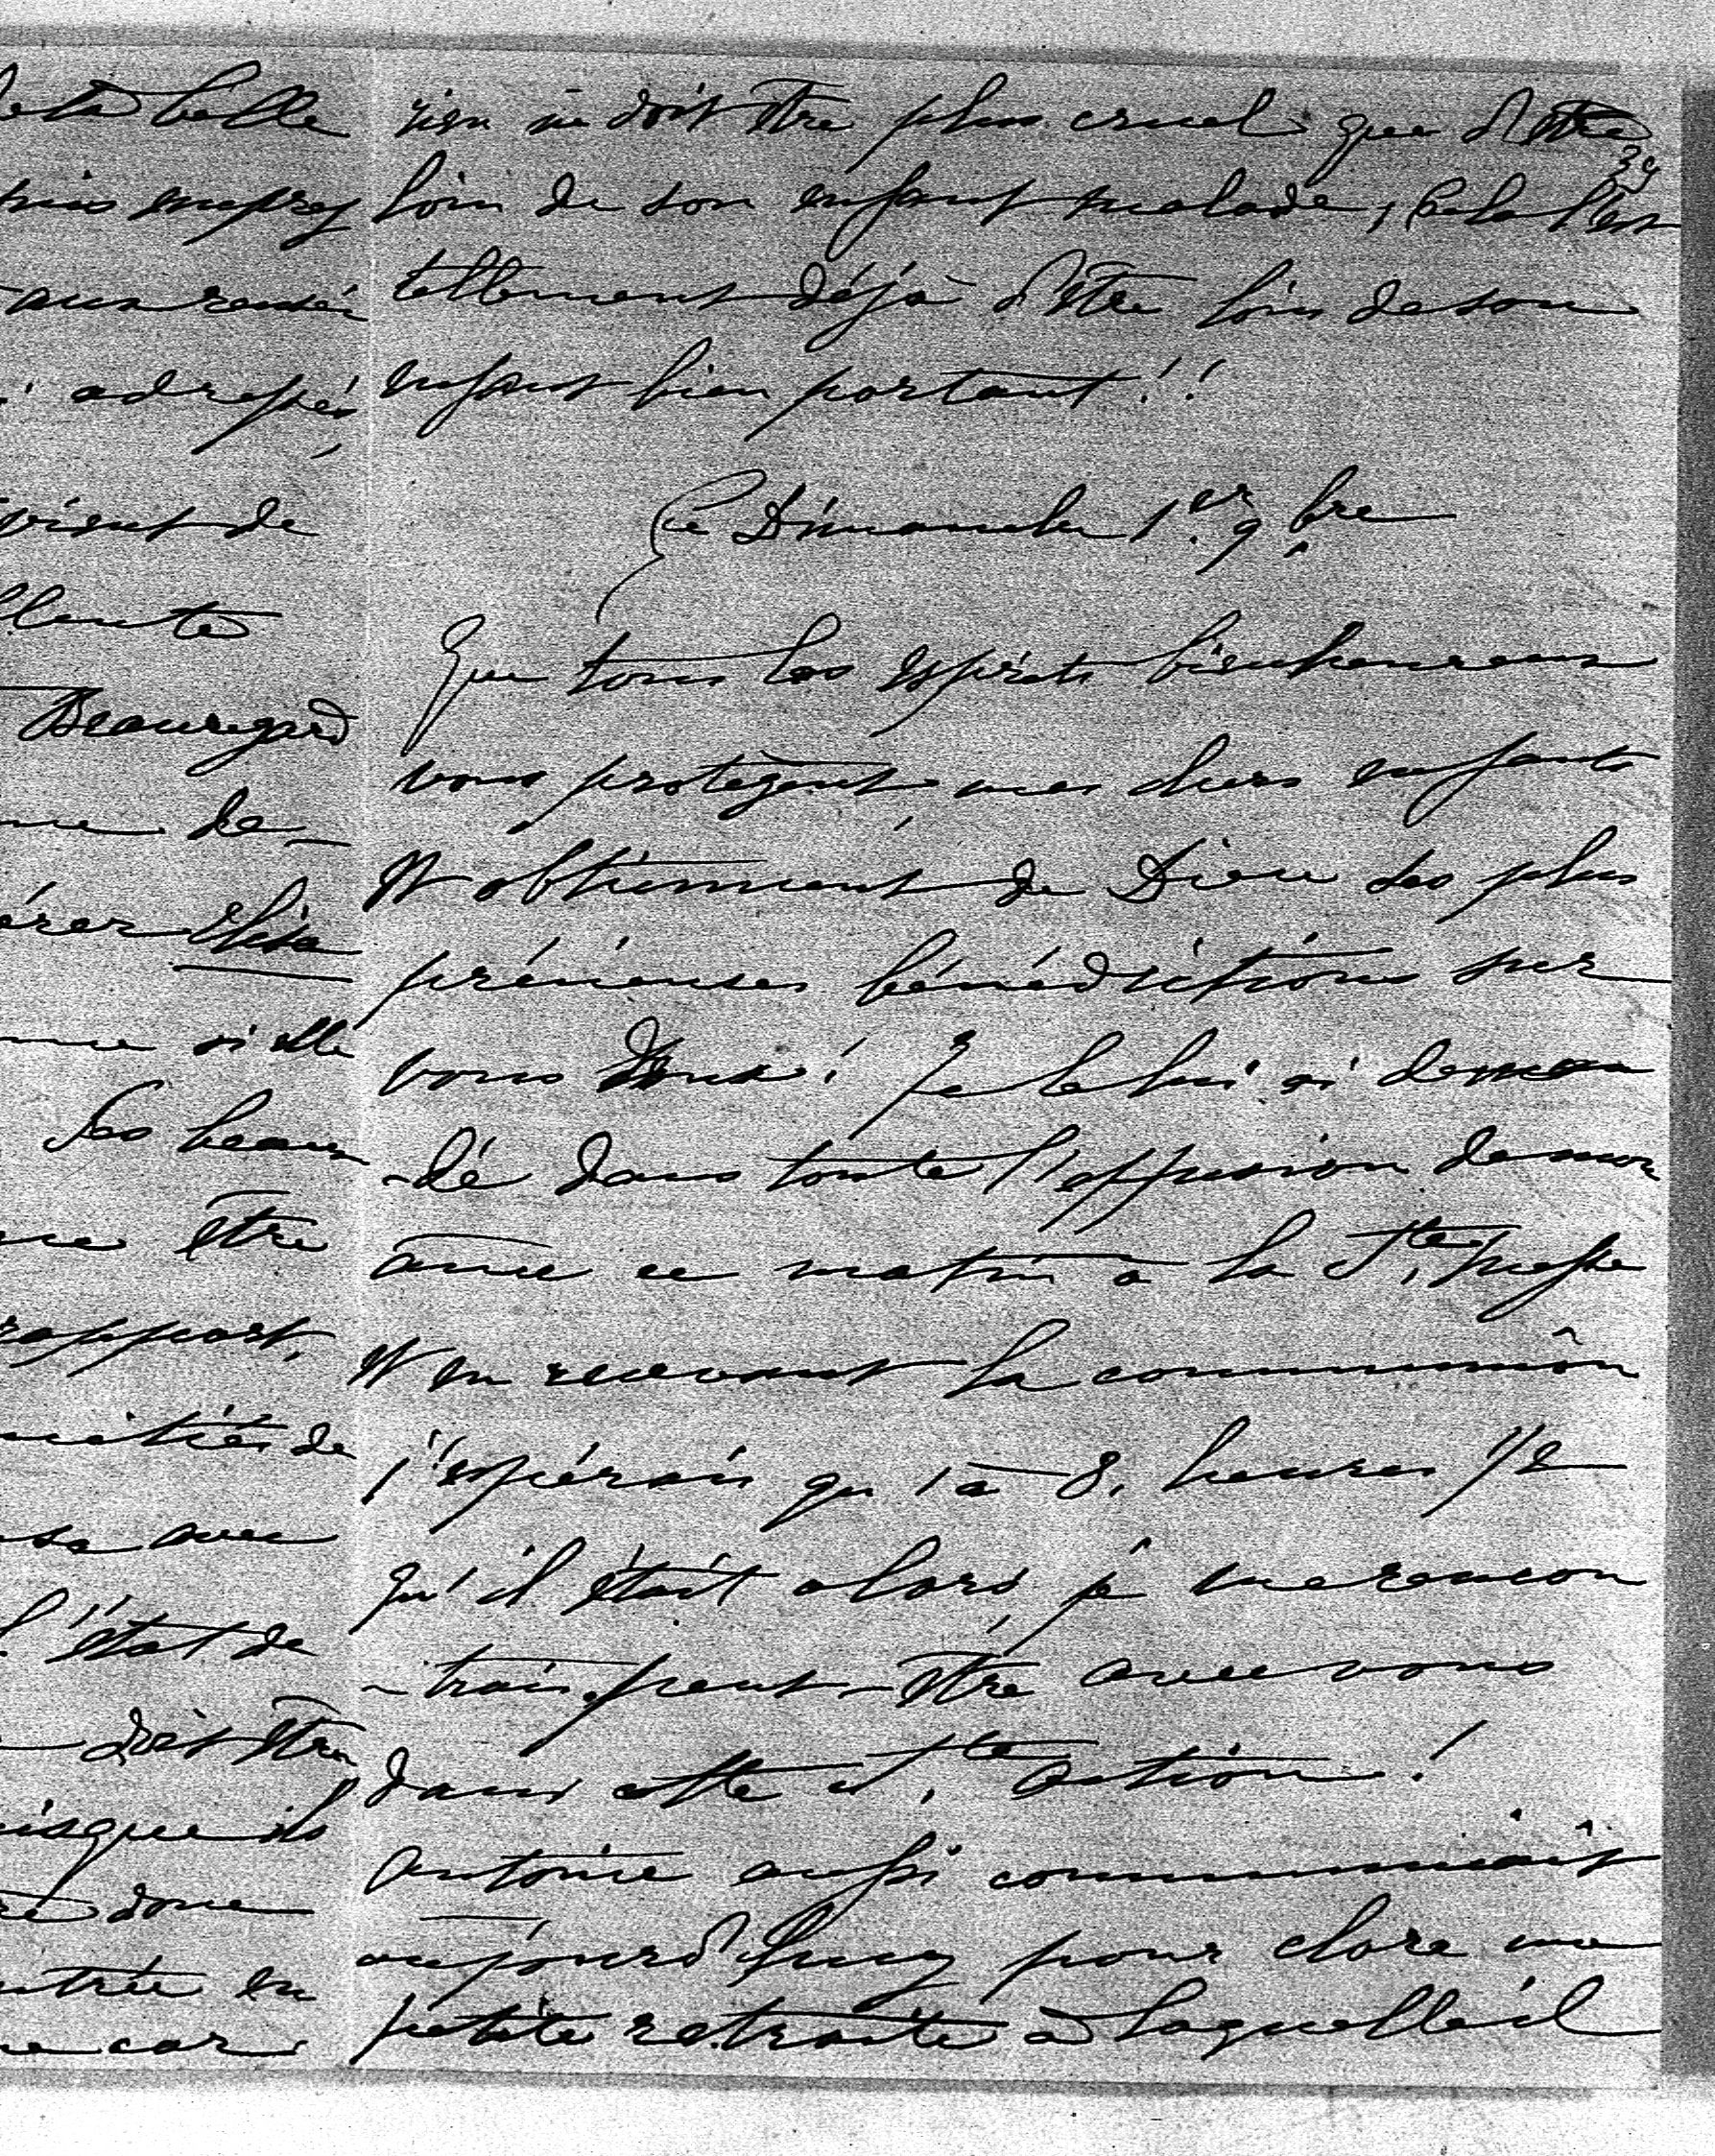 de ta belle
aux
adressés,
vient de
Beauregard
de
si elle
Les beaux
être
rapport,
de
avec
l'état de
doit être
puisque ils
donc
en
car
39
rien ne doit être plus cruel que d'être
loin de son enfant malade, Cela l'est
tellement déjà d'être loin de son
enfant bien portant!!
Ce Dimanche 1er 9bre
Que tous les esprits bienheureux
vous protègent, mes chers enfants
et obtiennent de Dieu les plus
précieuses bénédictions sur
vous deux! Je le lui ai deman
-dé dans toute l'effusion de mon
âme ce matin à la Ste Messe
et en recevant la communion
j'espérais qu'à 8. heures 1/2
qu'il était alors, je me rencon
-trais peut-être avec vous
dans cette Ste action!
Antoine aussi communiait
aujourd'huy pour clore une
petite retraite à laquelle il